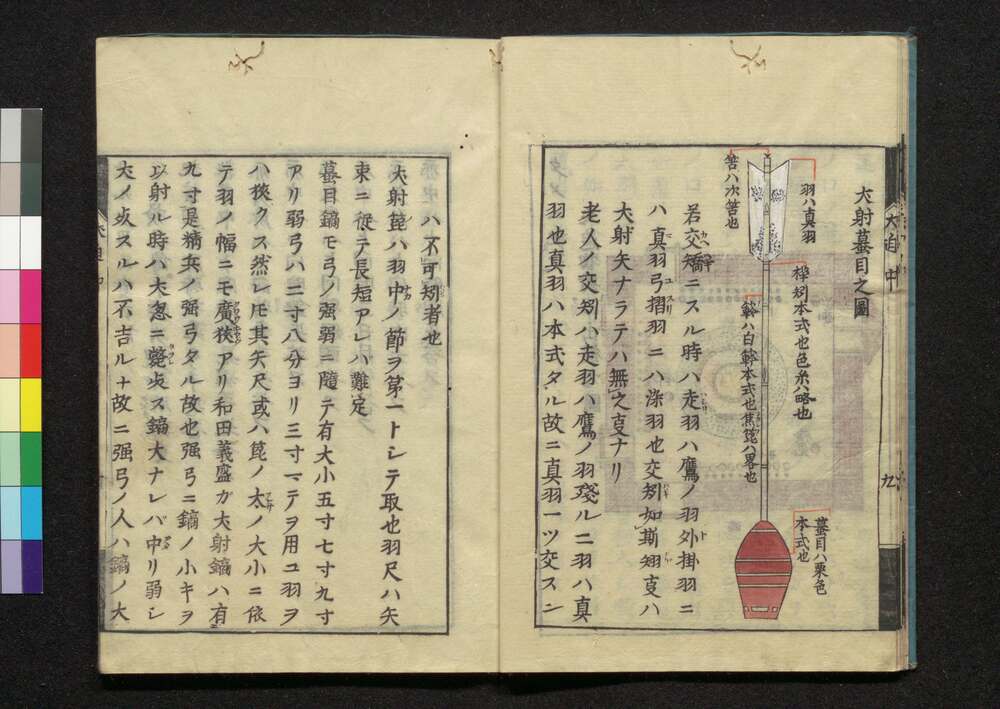 犬射蟇目之圖
羽ハ真羽
筈ハ次筈也
樺矧本式也色糸ハ略也
箆ハ白箆本式也焦箆ハ畧也
蟇目ハ栗色
本式也
若交矯ニスル時ハ走羽ハ鷹ノ羽外掛羽ニ
ハ真羽弓摺羽ニハ染羽也交矧如斯矧叓ハ
犬射矢ナラテハ無之叓ナリ
老人ノ交矧ハ走羽ハ鷹ノ羽残ル二羽ハ真
羽也真羽ハ本式タル故ニ真羽一ツ交スン
ハ不可矧者也
犬射箆ハ羽中ノ節ヲ第一トシテ取也羽尺ハ矢
束ニ從テ長短アレハ難定
蟇目鏑モ弓ノ强弱ニ隨テ有大小五寸七寸九寸
アリ弱弓ハ二寸八分ヨリ三寸マテヲ用ユ羽ヲ
ハ狹クス然レ𪜈其矢尺或ハ箆ノ太ノ大小ニ依
テ羽ノ幅ニモ廣狹アリ和田義盛ガ犬射鏑ハ有
九寸是精兵ノ强弓タル故也强弓ニ鏑ノ小キヲ
以射ル時ハ犬忽ニ斃
大ナレバ中リ弱シ
故ニ强弓ノ人ハ鏑ノ大
犬追中
九